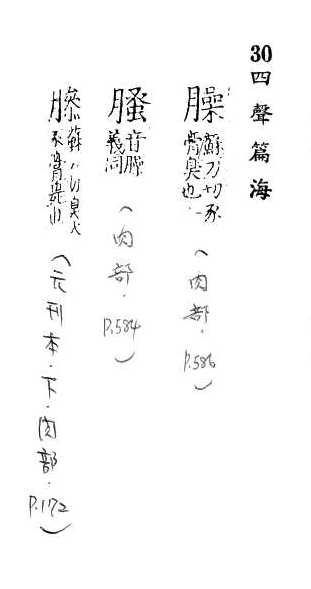 30四聲篇海
臊蘇刀切豕膏臭也（肉部．P.586）
膆音臊義同（肉部．P.584）
蘇刀切臭犬豕膏臭（元刊本．下．肉部．P.172）